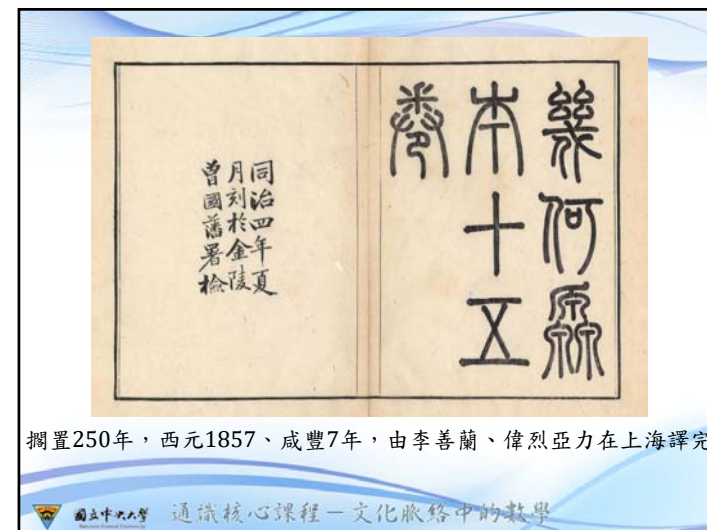 幾何原
本十五
卷
同治四年夏
月刻於金陵
曾國藩署檢
擱置250年，西元1857、咸豐7年，由李善蘭、偉烈亞力在上海譯完
國立中央大學
通識核心課程－文化脈絡中的數學